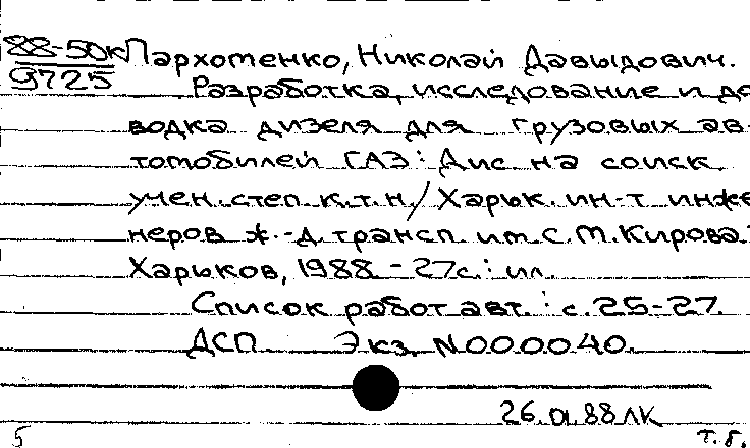 88-50к Пархоменко, Николай Давыдович.
9725
Разработка, исследование и до
водка дизеля для грузовых ав-
томобилей ГАЗ: Дис на соиск
учен. степ к.т.н./ Харьк. ин-т инже
неров ж.-д. трансп. им. С. М. Кирова.
Харьков, 1988 - 27с.: ил.
Список работ авт.: с. 25-27.
ДСП Экз. N000040.
26.01.88 ЛК
5 т. г.